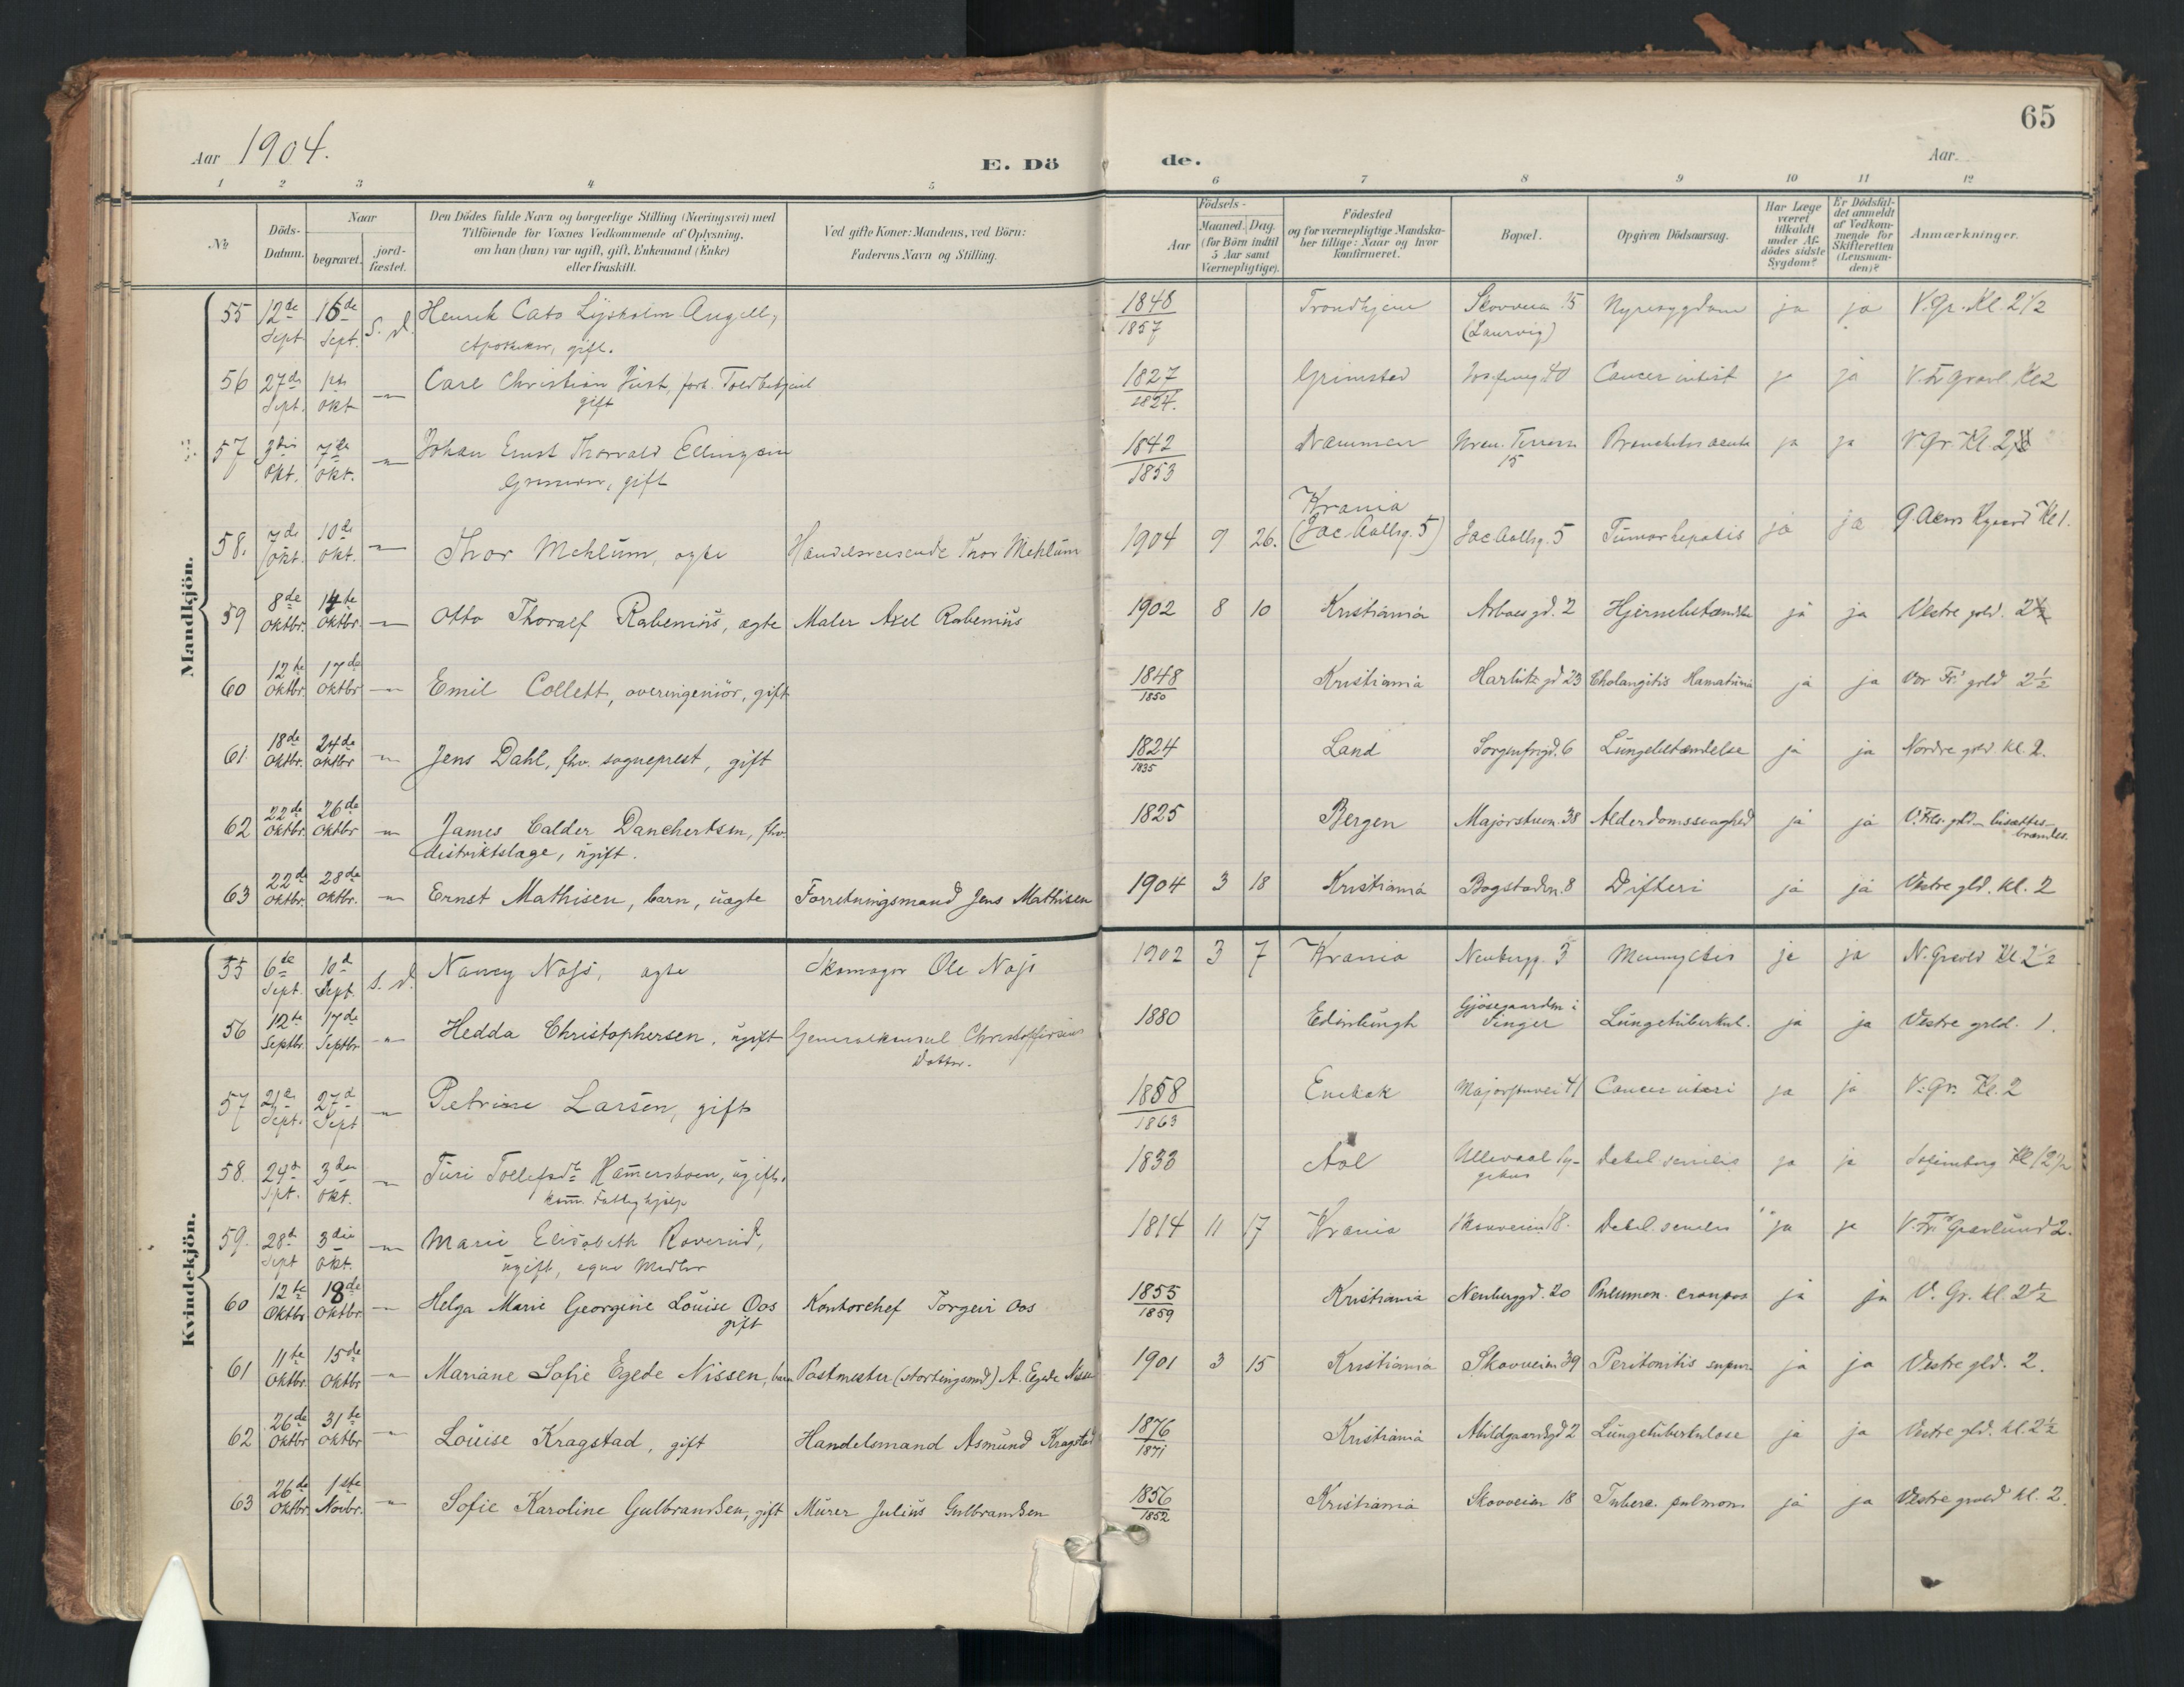 65
Aar 1904. E. Dö de. Aar.
1 2 3 4 5 6 7 8 9 10 11 12
№
Döds-
Datum.
Naar
begravet.
jord-
fæstet.
Den Dödes fulde Navn og borgerlige Stilling (Næringsvei) med
Tilföiende for Voxnes Vedkommende af Oplysning,
om han (hun) var ugift, gift, Enkemand (Enke)
eller fraskilt.
Ved gifte Koner: Mandens, ved Börn:
Faderens Navn og Stilling.
Födsels-
Aar
Maaned. Dag.
(for Börn indtil
5 Aar samt
Værnepligtige).
Födested
og for værnepligtige Mandska-
ber tillige: Naar og hvor
konfirmeret.
Bopæl.
Opgiven Dödsaarsag.
Har Læge
været
tilkaldt
under Af-
dödes sidste
Sygdom?
Er Dödsfal-
det anmeldt
af Vedkom-
mende for
Skifteretten
(Lensman-
den)?
Anmærkninger.
Mandkjön.
55 12de Sept. 16de Sept. S. d. Henrik Cato Lysholm Angell, 1848 Trondhjem Skovveien 15 Nyresygdom ja ja V. Gr. Kl. 2½
Apotheker, gift. 1857 (Laurvig)
56 27de Sept. 1ste Okt. —"— Carl Christian Just, forh. Toldbetjent 1827 Grimstad 40 Cancer intest ja ja V. Fr Gravl. Kl 2
gift 1824.
57 3die Okt. 7de Okt. —"— Johan Ernst Thorvald Ellingsen 1842 Drammen Uran. Terrasse Bronchitis acuta ja ja V Gr. Kl 2
gift 1853 15
Krania
58. 7de Okt. 10de Okt. —"— Thor Mehlum, ægte Handelsreisende Thor Mehlum 1904 9 26. (Jac. Aallsg. 5) Jac Aallsg. 5 Tumor hepatis ja ja Kl 1.
59 8de Oktbr. 14te Oktbr. —"— Otto Thoralf Rabenius, ægte Maler Axel Rabenius 1902 8 10 Kristiania Arboes gd. 2 Hjernebetændelse ja ja Vestre grld. 2½
60 12te Oktbr. 17de Oktbr —"— Emil Collett, overingeniör, gift 1848 Kristiania 23 Cholangitis Hæmaturia ja ja Vor Fr. grld 2½
1850
61. 18de Oktbr. 24de Oktbr —"— Jens Dahl, fhv. sogneprest, gift 1824 Land Sorgenfrigd. 6 Lungebetændelse ja ja Nordre grld. kl. 2.
1835
62 22de Oktbr. 26de Oktbr —"— James Calder Danchertsen, fhv. 1825 Bergen Majorstuen. 38 Alderdomssvaghed ja ja V. Frls. grld — bisættes —
distriktslæge, ugift. brændes.
63 22de Oktbr. 28de Oktbr. —"— Ernst Mathisen, barn, uægte Forretningsmand Jens Mathisen 1904 3 18 Kristiania Bogstadvn. 8 Difteri ja ja Vestre gld. kl. 2
Kvindekjön.
55 6de Sept. 10de Sept. s. d. Nancy Næss, ægte Skomager Ole Næss 1902 3 7 Krania Neubergg. 3 ja ja N. Gravld Kl 2½
56 12te Septbr. 17de Septbr —"— Hedda Christophersen, ugift Generalkonsul Christoffersens 1880 Edinburgh Gjösegaarden i Lungetuberkul. ja ja Vestre grld. 1.
Datter. Vinger
57 21de Sept. 27de Sept —"— Petrine Larsen, gift 1858 Enebak Majorstuvei 41 Cancer uteri ja ja V. Gr. Kl. 2
1863
58. 24de Spt. 3die Okt. —"— Turi Tollefsdr Hamersboen, ugift. 1833 Aal Ullevaal Sy- Debil. senilis ja ja Kl 12½
kom. Fattighjælp gehus
59. 28de Sept 3die Okt. —"— Marie Elisabeth Roverud, 1814 11 17 Krania Skovveien 18. Debil. senilis ja ja V. Frs Gravlund 2.
ugift, egne Midler
60 12te Oktbr 18de Oktbr. —"— Helga Marie Georgine Louise Oos Kontorchef Torgeir Oos 1855 Kristiania Neuberggd. 20 Pneumon. croupos ja ja V. Gr. kl. 2½
gift 1859
61 11te Oktbr. 15de Oktbr —"— Mariane Sofie Egede Nissen, barn Postmester (stortingsmd) A. Egede Nissen 1901 3 15 Kristiania Skovveien 39 Peritonitis supur. ja ja Vestre gld. 2.
62 26de Oktbr 31te Oktbr —"— Louise Kragstad, gift Handelsmand Asmund Kragstad 1876 Kristiania Abildgaardsgd 2 Lungetuberkulose ja ja Vestre gld. kl. 2½
1871
63 26de Oktbr. 1ste Novbr. —"— Sofie Karoline Gulbrandsen, gift Murer Julius Gulbrandsen 1856 Kristiania Skovveien 18 Tuberc. pulmon. ja ja Vestre gravld kl. 2.
1852